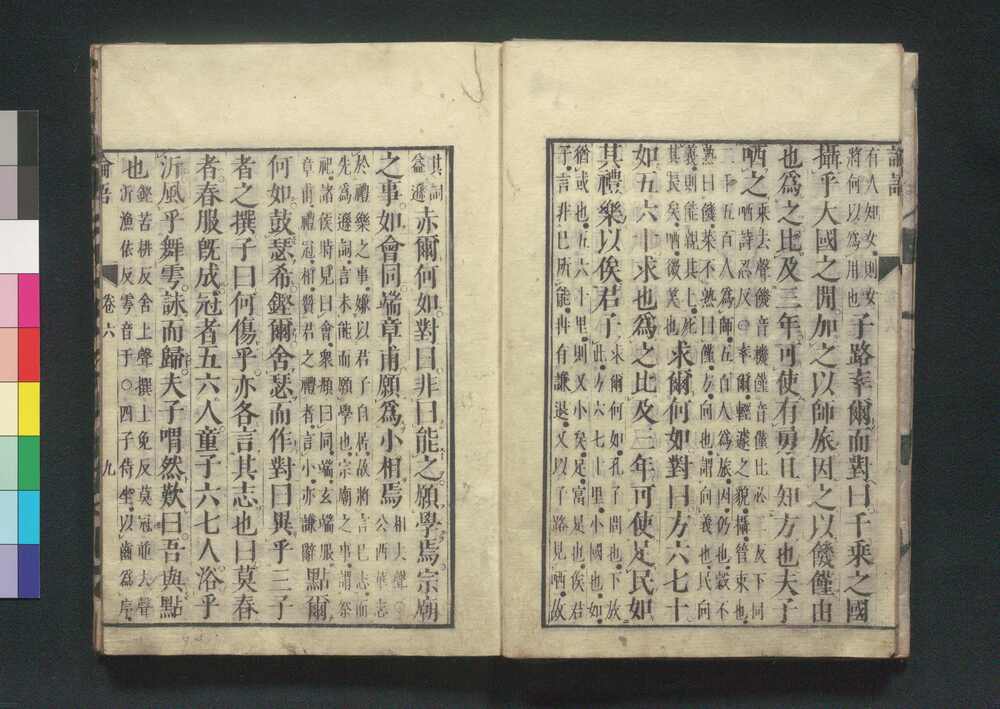 論語
有人知女則女
將何以爲用也
子路率爾而對曰千乘之國
攝乎大國之閒加之以師旅因之以饑饉由
也爲之比及三年可使有勇且知方也夫子
哂之
乘去聲饑音機饉音僅比必二反下同
哂詩忍反○率爾輕遽之貌攝管束也
二千五百人爲師五百人爲旅因仍也穀不
熟曰饑菜不熟曰饉方向也謂向義也民向
義則能親其上死
其長矣哂微笑也
求爾何如對曰方六七十
如五六十求也爲之比及三年可使足民如
其禮樂以俟君子
求爾何如孔子問也下放
此方六七十里小國也如
猶或也五六十里則又小矣足富足也俟君
子言非己所能冉有謙退又以子路見哂故
其詞
益遜
赤爾何如對曰非曰能之願學焉宗廟
之事如會同端章甫願爲小相焉
相去聲○
公西華志
於禮樂之事嫌以君子自居故將言己志而
先爲遜詞言未能而願學也宗廟之事謂祭
祀諸侯時見曰會衆頫曰同端玄端服
章甫禮冠相贊君之禮者言小亦謙辭
點爾
何如鼓瑟希鏗爾舍瑟而作對曰異乎三子
者之撰子曰何傷乎亦各言其志也曰莫春
者春服既成冠者五六人童子六七人浴乎
沂風乎舞雩詠而歸夫子喟然歎曰吾與點
也
鏗苦耕反舍上聲撰士免反莫冠並去聲
沂漁依反雩音于○四子侍坐以齒爲序
論語 卷六 九